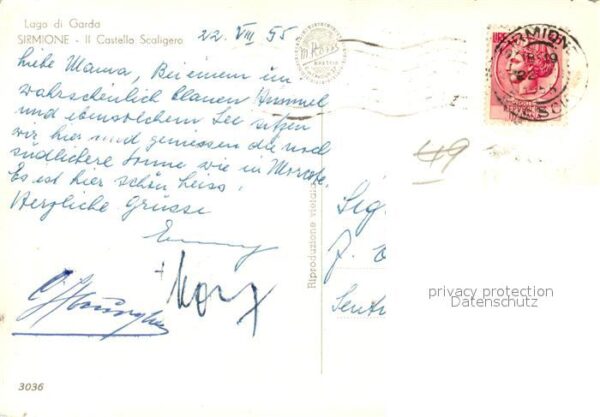 Lago di Garda
SIRMIONE - Il Castello Scaligero
22 VIII 55
Liebe Mama, Bei einem un-
wahrscheinlich blauen Himmel
und ebensolchem See sitzen
wir hier und geniessen die noch
südlichere Sonne wie in Morcote.
Es ist hier schön heiss!
Herzliche Grüsse
Riproduzione vietata
LIRE
SIRMIONE
BRESCIA
49
Sig
J.
Sentr
privacy protection
Datenschutz
3036